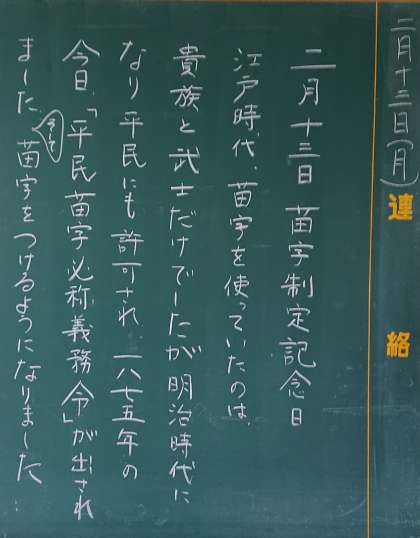 二月十三日(月)
連絡
二月十三日 苗字制定記念日
江戸時代、苗字を使っていたのは、
貴族と武士だけでしたが明治時代に
なり平民にも許可され、一八七五年の
今日、「平民苗字必称義務令」が出され
ました。そして苗字をつけるようになりました…